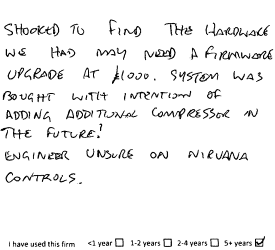 SHOCKED TO FIND THE HARDWARE
WE HAD MAY NEED A FIRMWARE
UPGRADE AT £1000. SYSTEM WAS
BOUGHT WITH INTENTION OF
ADDING ADDITIONAL COMPRESSOR IN
THE FUTURE!
ENGINEER UNSURE ON NIRVANA
CONTROLS.
I have used this firm <1 year ☐ 1-2 years ☐ 2-4 years ☐ 5+ years ☑